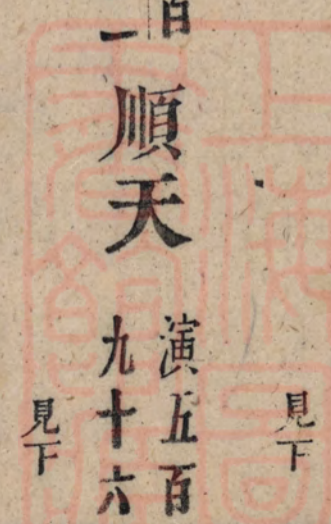 見下
百
一
順天
演五百
九十六
見下